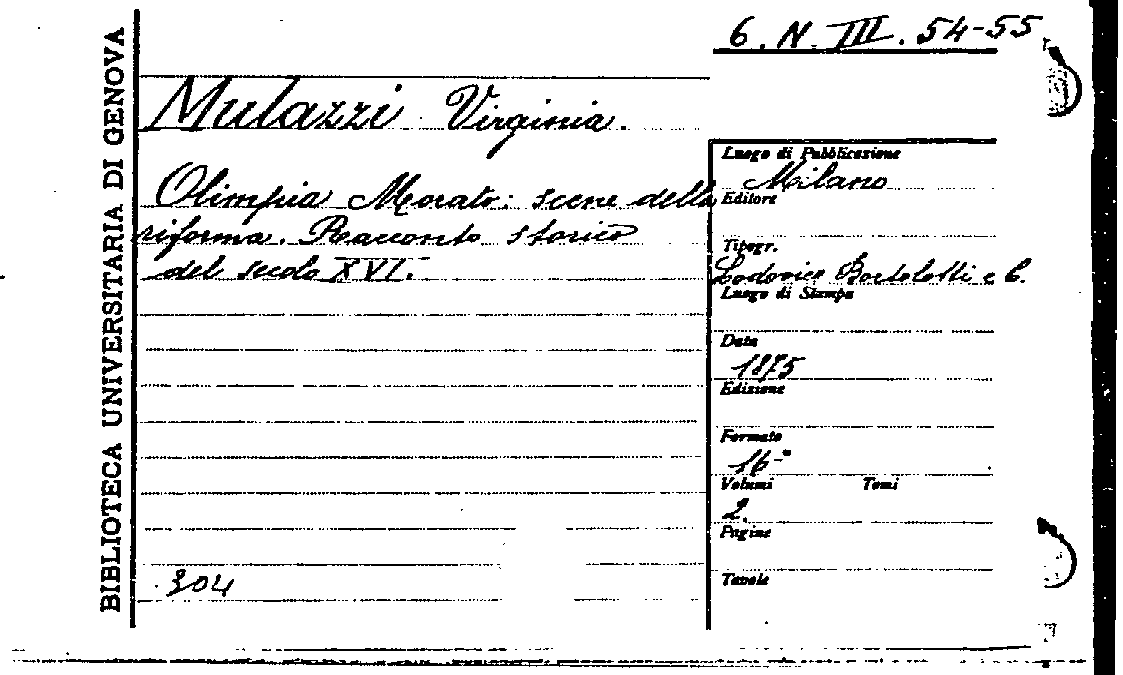 6. N. III. 54-55
BIBLIOTECA UNIVERSITARIA DI GENOVA
Mulazzi Virginia.
Olimpia Morato: scene della
riforma. Racconto storico
del secolo XVI.
304
Luogo di Pubblicazione
Milano
Editore
Tipogr.
Lodovico Bortolotti e C.
Luogo di Stampa
Data
1875
Edizione
Formato
16°
Volumi Tomi
2.
Pagine
Tavole